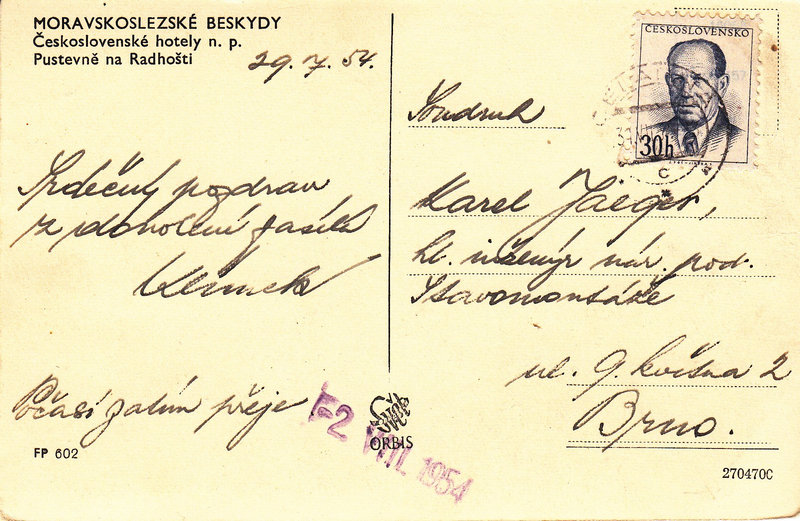 MORAVSKOSLEZSKÉ BESKYDY
Československé hotely n. p.
Pustevně na Radhošti
29. 7. 54.
Srdečný pozdrav
z dovolení zasílá
Počasí zatím přeje
FP 602
ORBIS
-2 VIII. 1954
ČESKOSLOVENSKO
30h
Soudruh
Karel Jaeger,
hl. inženýr nár. pod.
Stavomontáže
ul. 9. května 2
Brno.
270470C